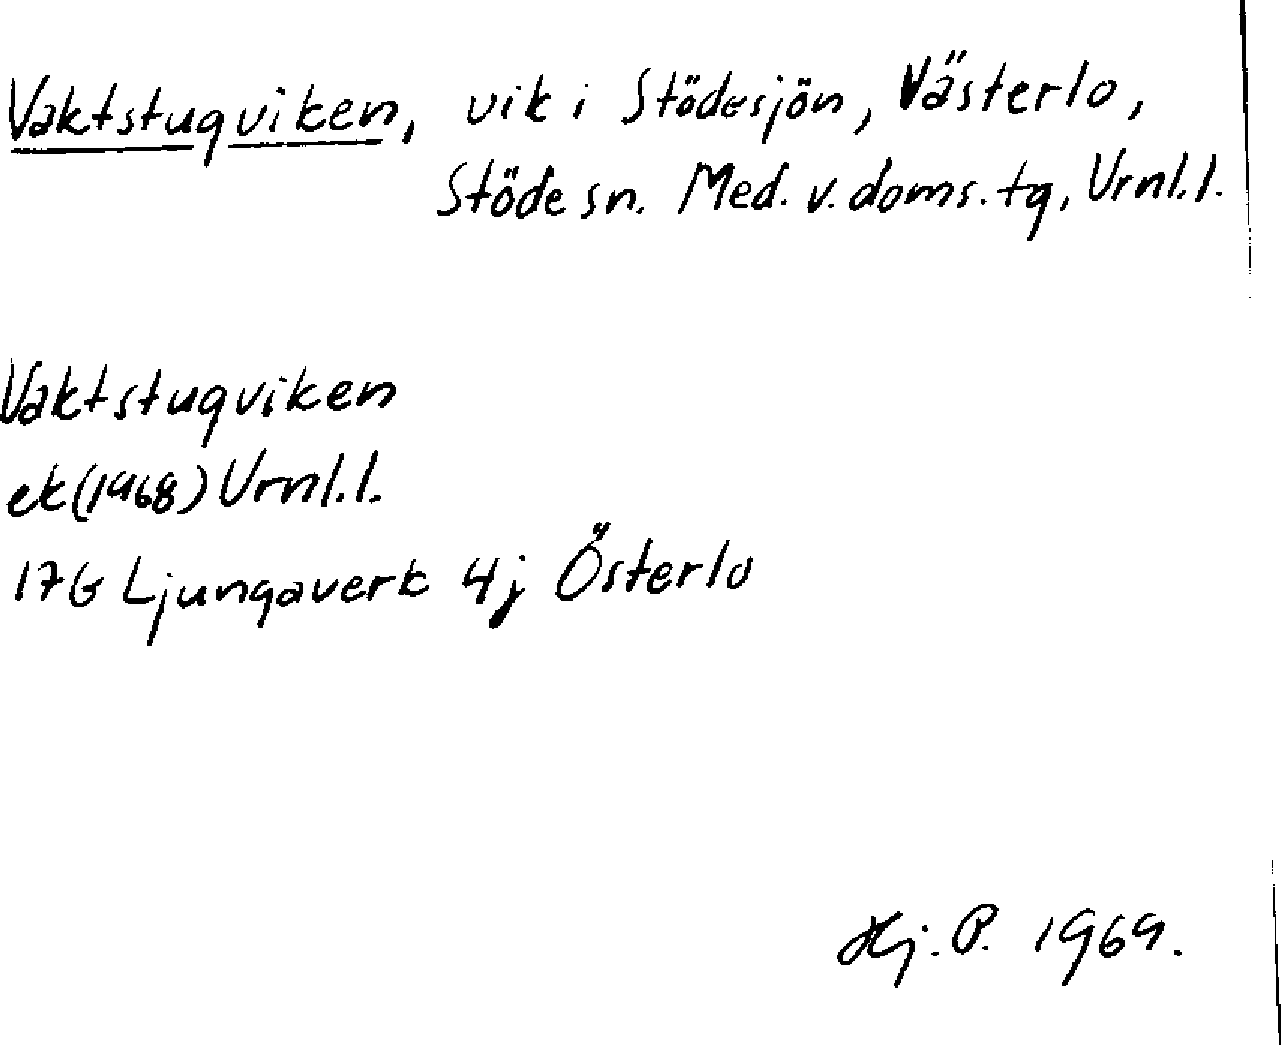 Vaktstugviken, vik i Stödesjön, Västerlo,
Stöde sn. Med. v. doms. tg, Vrnl. l.
Vaktstugviken
ek (1968) Vrnl. l.
17G Ljungaverk 4j Österlo
Hj. P. 1969.